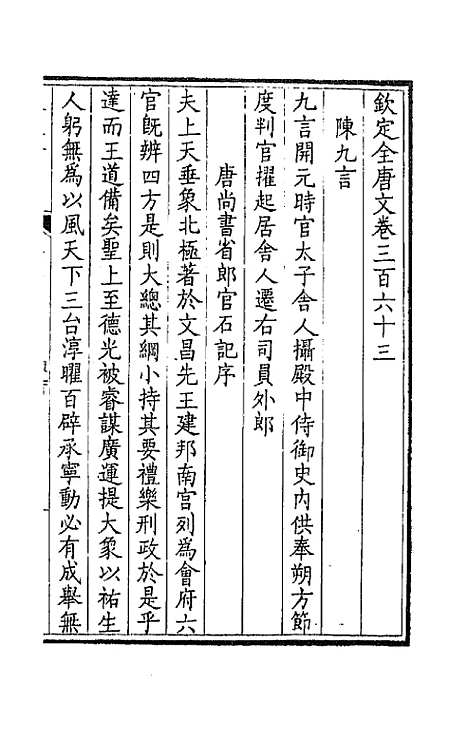 欽定全唐文卷三百六十三
陳九言
九言開元時官太子舍人攝殿中侍御史內供奉朔方節
度判官擢起居舍人遷右司員外郎
唐尚書省郎官石記序
夫上天垂象北極著於文昌先王建邦南宮列為會府六
官既辨四方是則大總其綱小持其要禮樂刑政於是乎
達而王道備矣聖上至德光被睿謀廣運提大象以祐生
人躬無為以風天下三台淳曜百辟承寧動必有成舉無